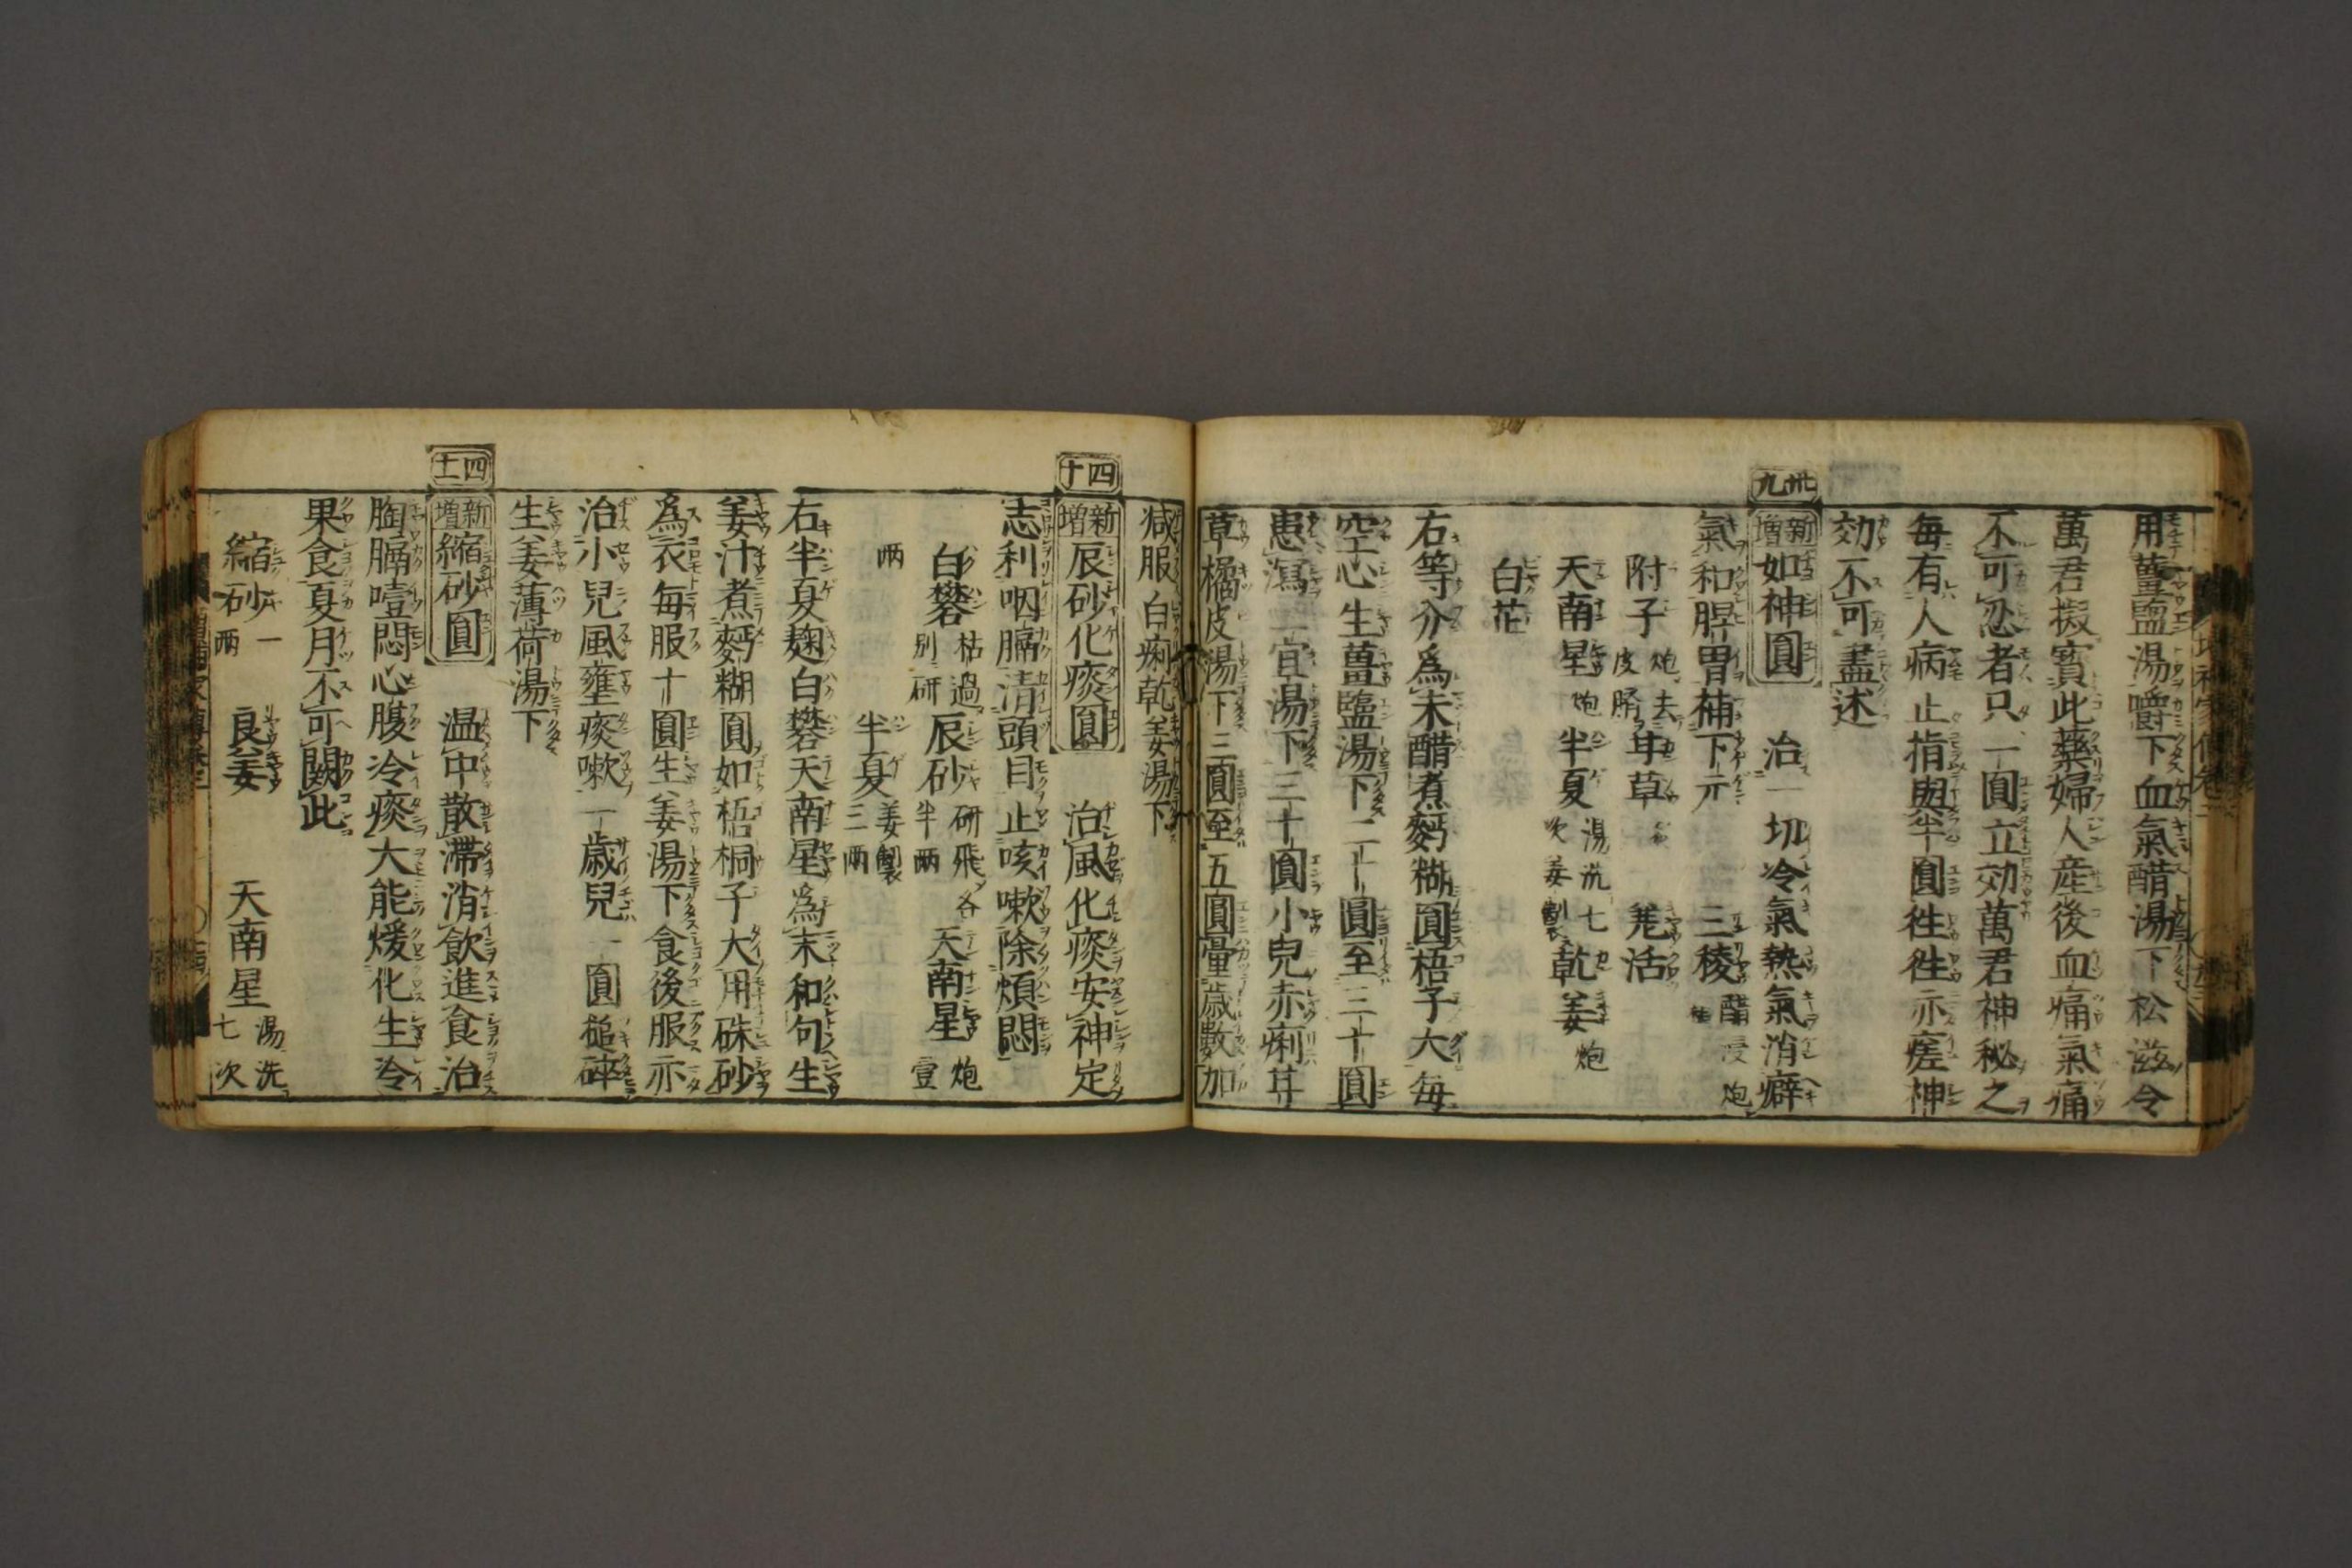 用薑鹽湯嚼下血氣醋湯下松滋令
萬君擬寳此藥婦人産後血痛氣痛
不可忍者只一圓立効萬君神秘之
每有人病止指與半圓徃徃亦瘥神
効不可盡述
卅九
新增如神圓　治一切冷氣熱氣消癖
氣和脾胃補下元　三稜醋浸炮
附子炮去皮臍　草　羌活
天南星炮　半夏湯洗七次姜製　乾姜炮
白芷
右等分為末醋煮麪糊圓梧子大每
空心生薑鹽湯下二十圓至三十圓
患瀉一宜湯下三十圓小兒赤痢甘
草橘皮湯下三圓至五圓量歳數加
减服白痢乾姜湯下
四十
新增辰砂化痰圓　治風化痰安神定
志利咽膈清頭目止咳嗽除煩悶
白礬枯過別研　辰砂研飛各半兩　天南星炮壹
兩　半夏姜製三兩
右半夏麴白礬天南星為末和勻生
姜汁煮麪糊圓如梧桐子大用硃砂
為衣每服十圓生姜湯下食後服亦
治小兒風壅痰嗽一歳兒一圓槌碎
生姜薄荷湯下
四十一
新增縮砂圓　温中散滯消飲進食治
胸膈噎悶心腹冷痰大能煖化生冷
果食夏月不可闕此
縮砂一兩　良姜　天南星湯洗七次